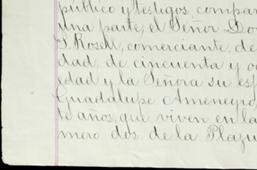 público y testigos, compar
una parte, el Señor Do
S. Roseh, comerciante, de
dad, de cincuenta y o
edad y la Señora su es
Guadalupe Ameneyro,
te años, que viven en la
mero dos de la Plazu